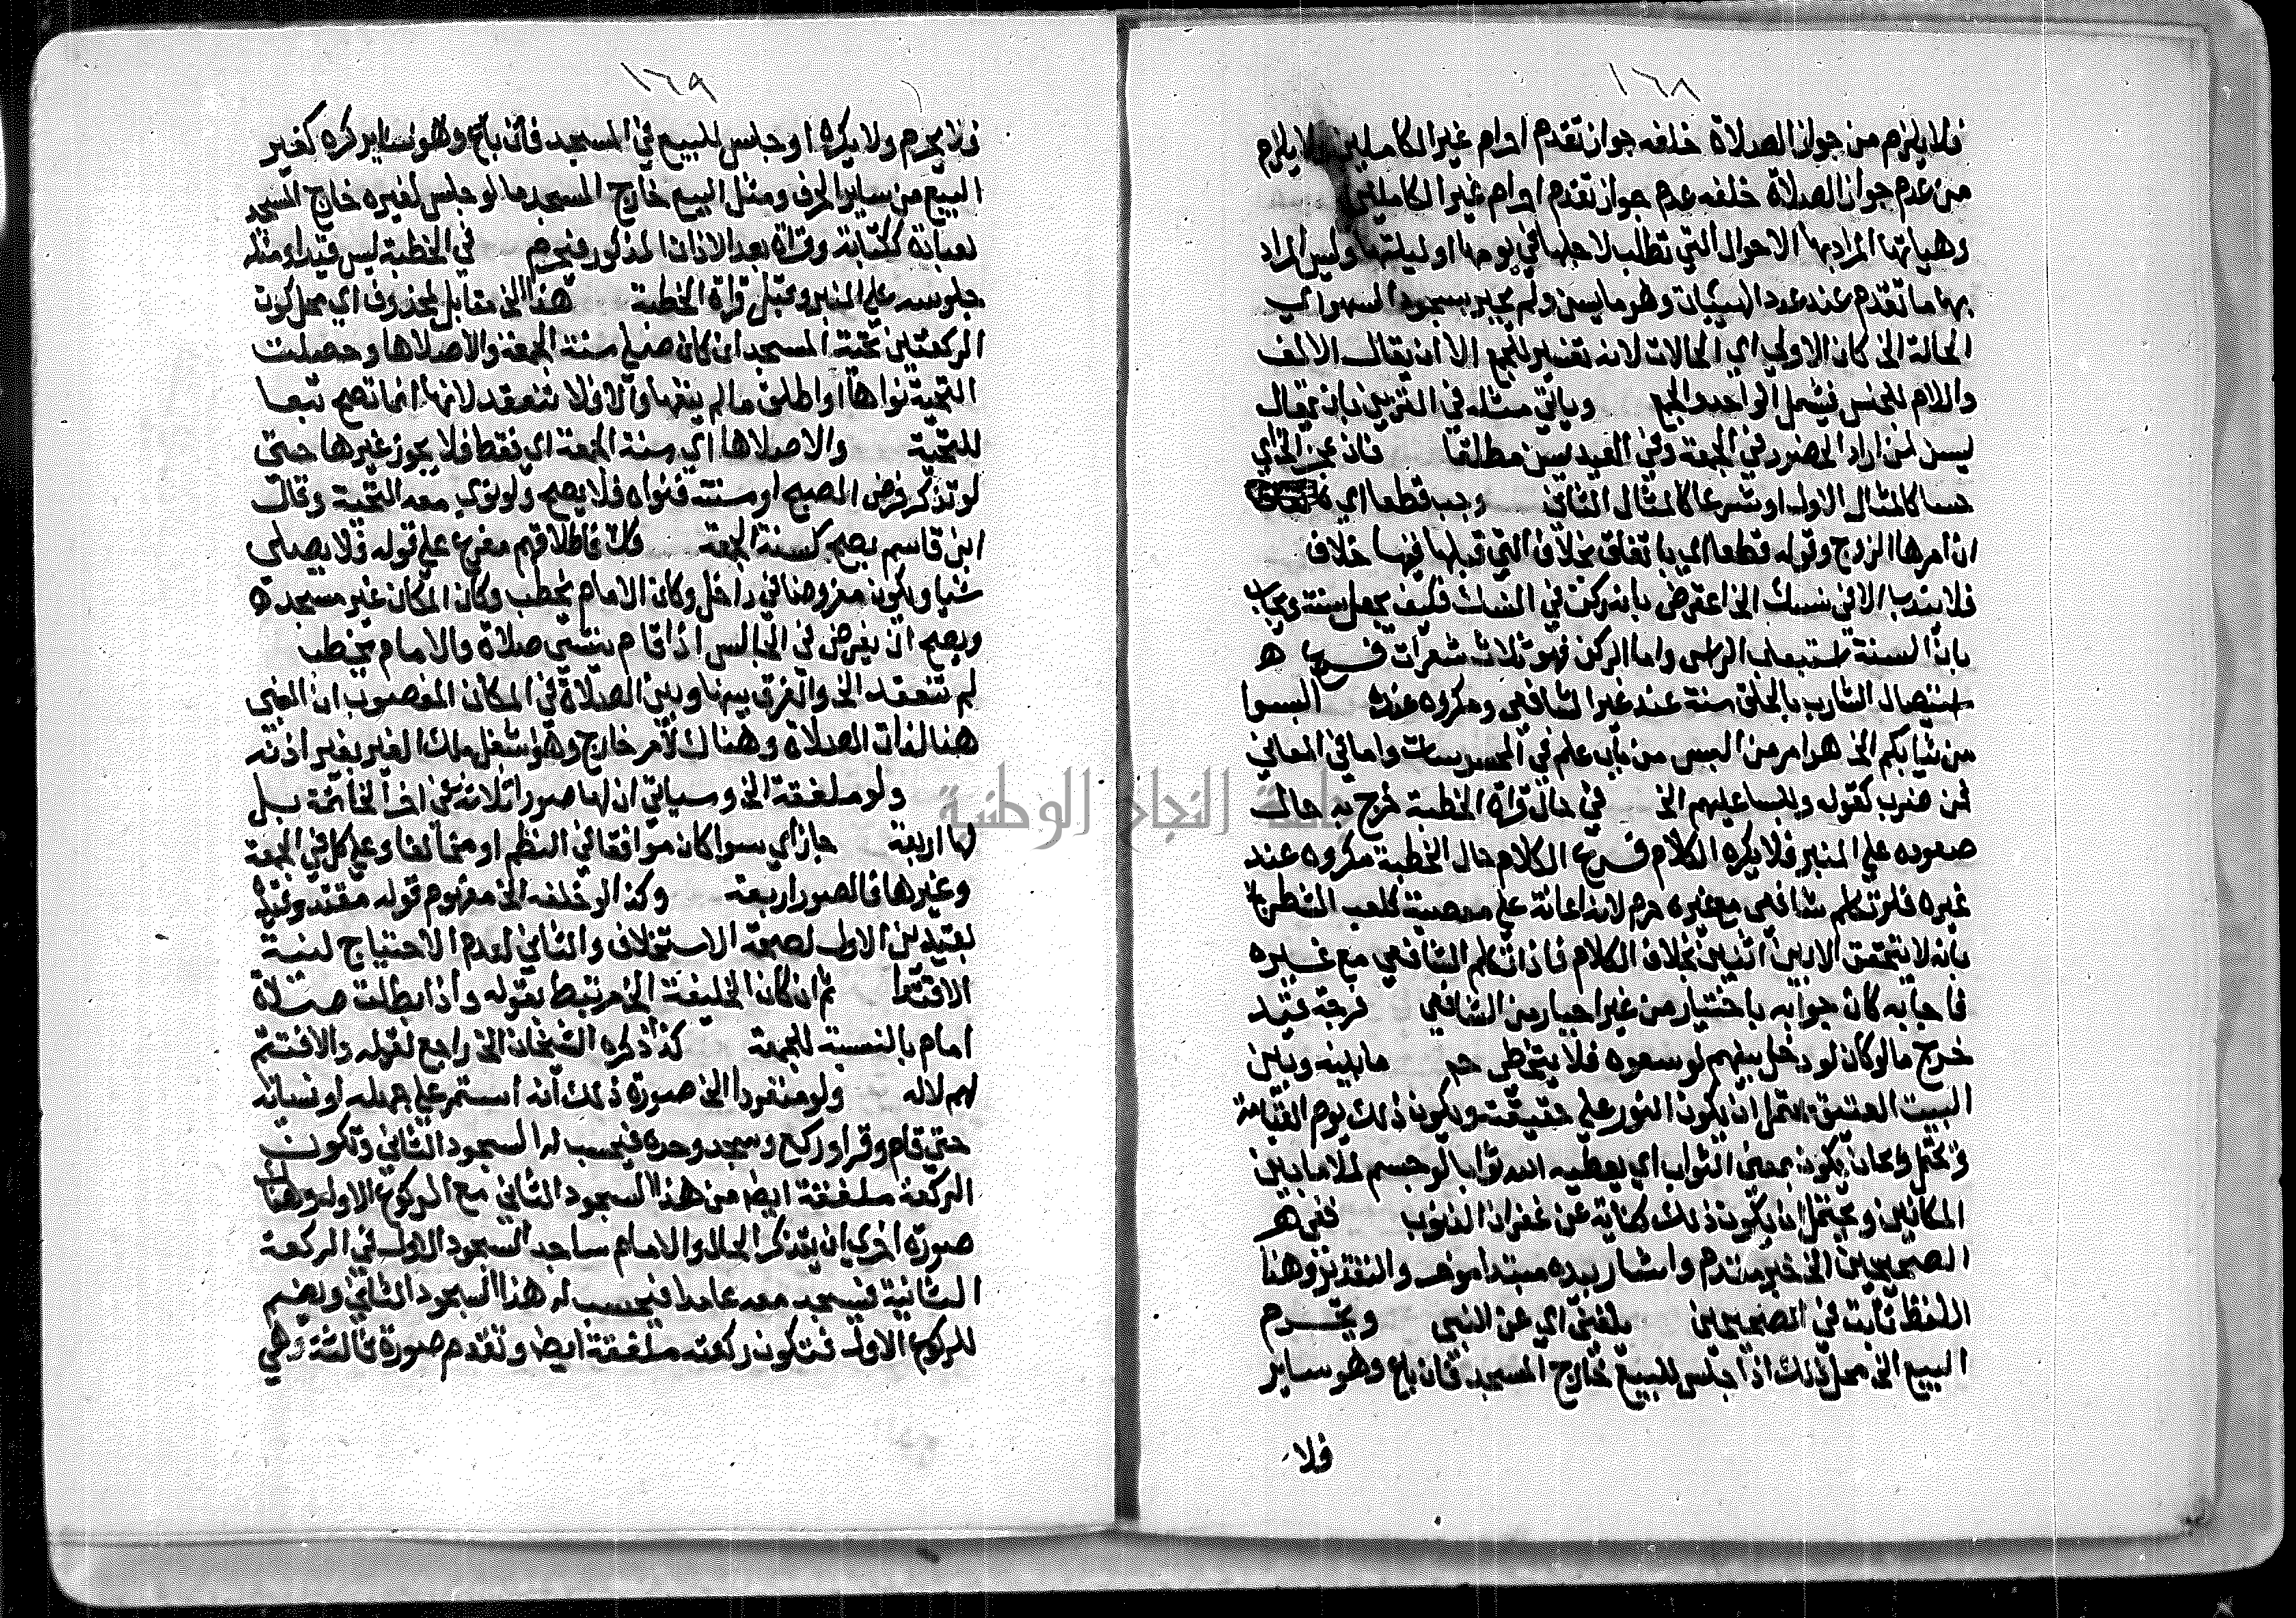 ١٦٨
فلا يلزم من جواز الصلاة خلفه جواز تقدم احرام غير الكاملين ولا يلزم
من عدم جواز الصلاة خلفه عدم جواز تقدم احرام غير الكاملين
وهياتها المراد بها الاحوال التي تطلب لاجلها في يومها او ليلتها وليس المراد
بها ما تقدم عند عدد الهيئات وهو ما يسن ولم يجبر بسجود السهو اي
الحالة الخ كان الاولى اي الحالات لانه تفسير للجمع الا ان يقال الالف
واللام للجنس فيشمل الواحد والجمع وياتي مثله في التزين بان يقال
يسن لمن اراد الحضور في الجمعة وفي العيد يسن مطلقا فان عجز الخ اي
حسا كالمثال الاول او شرعا كالمثال الثاني وجب قطعا اي
ان امرها الزوج وقوله قطعا اي باتفاق بخلاف التي قبلها ففيها خلاف
فلا يندب الا في نسك الخ اعترض بانه ركن في النسك فكيف يجعل سنة ويجاب
بان السنة استيعاب الراس واما الركن فهو ثلاث شعرات فرع
استيصال الشارب بالحلق سنة عند غير الشافعي ومكروه عنده البسوا
من ثيابكم الخ هو امر من البس من باب علم في المحسوسات واما في المعاني
فمن ضرب كقوله وللبسنا عليهم الخ في حال قراة الخطبة خرج به حال
صعوده على المنبر فلا يكره الكلام فرع الكلام حال الخطبة مكروه عند
غيره فلو تكلم شافعي مع غيره حرم لانه اعانة على معصية كلعب الشطرنج
بانه لا يتحقق الا بين اثنين بخلاف الكلام فاذا تكلم الشافعي مع غيره
فاجابه كان جوابه باختيار من غير اجبار من الشافعي فرجة قيد
خرج ما لو كان لو دخل بينهم لوسعوه فلا يتخطى ما بينه وبين
البيت العتيق يحتمل ان يكون النور على حقيقته ويكون ذلك يوم القيامة
ويحتمل ان يكون بمعنى الثواب اي يعطيه الله ثوابا لو جسم لملا ما بين
المكانين ويحتمل ان يكون ذلك كناية عن غفران الذنوب ففي
الصحيحين الخ خبر مقدم واشار بيده مبتدا موخر والتقدير وهذا
اللفظ ثابت في الصحيحين بلغني اي عن النبي ويحرم
البيع الخ محل ذلك اذا جلس للبيع خارج المسجد فان باع وهو ساير
فلا
١٦٩
فلا يحرم ولا يكره او جلس للبيع في المسجد فان باع وهو ساير كره كغير
البيع من ساير الحرف ومثل البيع خارج المسجد ما لو جلس لغيره خارج المسجد
كتابة وقراة بعد الاذان المذكور فيحرم في الخطبة ليس قيدا ومثله
جلوسه على المنبر وقبل قراة الخطبة هذا الخ مقابل لمحذوف اي محل كون
الركعتين تحية المسجد ان كان صلى سنة الجمعة والا صلاها وحصلت
التحية نواها او اطلق ما لم ينفها والا فلا تنعقد لانها انما تصح تبعا
للتحية والا صلاها اي سنة الجمعة اي فقط فلا يجوز غيرها حتى
لو تذكر فرض الصبح او سنته فنواه فلا يصح ولو نوى معه التحية وقال
ابن قاسم يصح كسنة الجمعة فاطلاقهم مفرع على قوله فلا يصلي
شيا ويكون مفروضا في داخل وكان الامام يخطب وكان المكان غير مسجد
ويصح ان يفرض في الجالس اذا قام ينشي صلاة والامام يخطب
لم تنعقد الخ والفرق بينها وبين الصلاة في المكان المغصوب ان النهي
هنا لذات الصلاة وهناك لامر خارج وهو شغل ملك الغير بغير اذنه
ولو ملفقة الخ وسياتي ان لها صورا ثلاثة في اخر الخاتمة بل
لها اربعة جاز اي سوا كان موافقا في النظم او مخالفا وعلى كل في الجمعة
وغيرها فالصور اربعة وكذا لو خلفه الخ مفهوم قوله مقتد وقيد
بقيدين الاول لصحة الاستخلاف والثاني لعدم الاحتياج لنية
الاقتدا ثم ان كان الخليفة الخ مرتبط بقوله واذا بطلت صلاة
امام بالنسبة للجمعة كذا ذكره الشيخان الخ راجع لقوله والا فتتم
لهم لا له ولو منفردا الخ صورة ذلك انه استمر على جهله او نسيانه
حتى قام وقرا وركع وسجد وحده فيحسب له السجود الثاني وتكون
الركعة ملفقة ايضا من هذا السجود الثاني مع الركوع الاول وهناك
صورة اخرى ان يتذكر الحال والامام ساجد السجود الاول في الركعة
الثانية فيسجد معه عامدا فيحسب له هذا السجود الثاني ويضم
للركوع الاول فتكون ركعته ملفقة ايضا وتقدم صورة ثالثة وهي
جامعة النجاح الوطنية